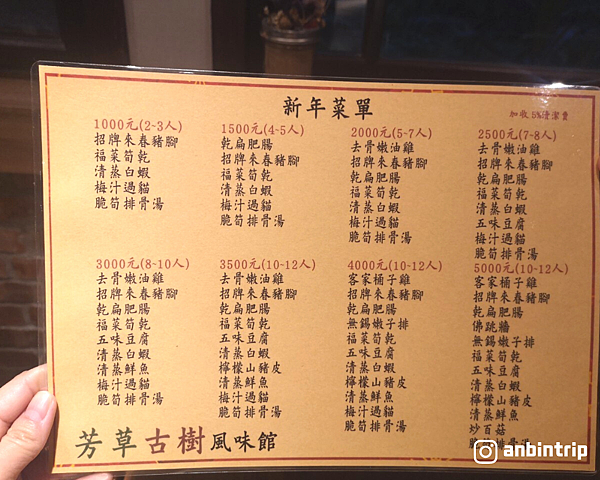 新年菜單
加收 5%清潔費
1000元(2~3人)
招牌來春豬腳
福菜筍乾
清蒸白蝦
梅汁過貓
脆筍排骨湯
1500元(4~5人)
乾扁肥腸
招牌來春豬腳
福菜筍乾
清蒸白蝦
梅汁過貓
脆筍排骨湯
2000元(5~7人)
去骨嫩油雞
招牌來春豬腳
乾扁肥腸
福菜筍乾
清蒸白蝦
梅汁過貓
脆筍排骨湯
2500元(7~8人)
去骨嫩油雞
招牌來春豬腳
乾扁肥腸
福菜筍乾
清蒸白蝦
五味豆腐
梅汁過貓
脆筍排骨湯
3000元(8~10人)
去骨嫩油雞
招牌來春豬腳
乾扁肥腸
福菜筍乾
五味豆腐
清蒸白蝦
清蒸鮮魚
梅汁過貓
脆筍排骨湯
3500元(10~12人)
去骨嫩油雞
招牌來春豬腳
乾扁肥腸
福菜筍乾
五味豆腐
清蒸白蝦
檸檬山豬皮
清蒸鮮魚
梅汁過貓
脆筍排骨湯
4000元(10~12人)
客家桶子雞
招牌來春豬腳
乾扁肥腸
無錫嫩子排
福菜筍乾
五味豆腐
清蒸白蝦
檸檬山豬皮
清蒸鮮魚
梅汁過貓
脆筍排骨湯
5000元(10~12人)
客家桶子雞
招牌來春豬腳
乾扁肥腸
佛跳牆
無錫嫩子排
福菜筍乾
五味豆腐
清蒸白蝦
檸檬山豬皮
清蒸鮮魚
炒百菇
排骨湯
芳草古樹風味館
anbintrip